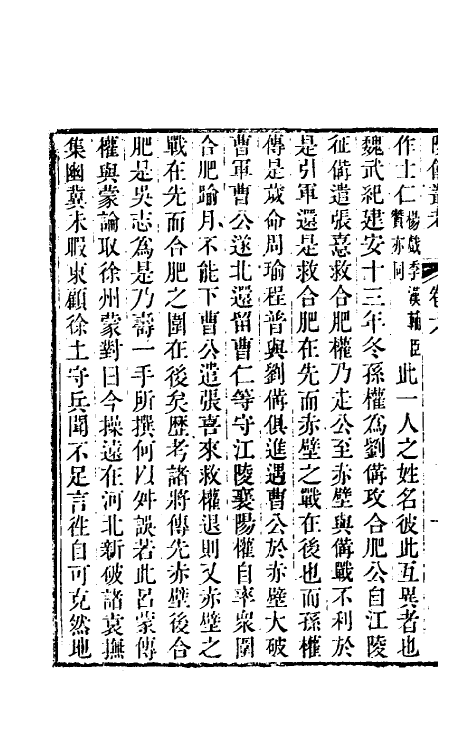 陔餘叢考 卷六
作士仁楊戲季漢輔臣贊亦同此一人之姓名彼此互異者也
魏武紀建安十三年冬孫權為劉備攻合肥公自江陵
征備遣張憙救合肥權乃走公至赤壁與備戰不利於
是引軍還是救合肥在先而赤壁之戰在後也而孫權
傳是歲命周瑜程普與劉備俱進遇曹公於赤壁大破
曹軍曹公遂北還留曹仁等守江陵襄陽權自率衆圍
合肥踰月不能下曹公遣張喜來救權退則又赤壁之
戰在先而合肥之圍在後矣歷考諸將傳先赤壁後合
肥是吳志為是乃壽一手所撰何以舛誤若此呂蒙傳
權與蒙論取徐州蒙對曰今操遠在河北新破諸袁撫
集幽冀未暇東顧徐土守兵聞不足言徃自可克然地